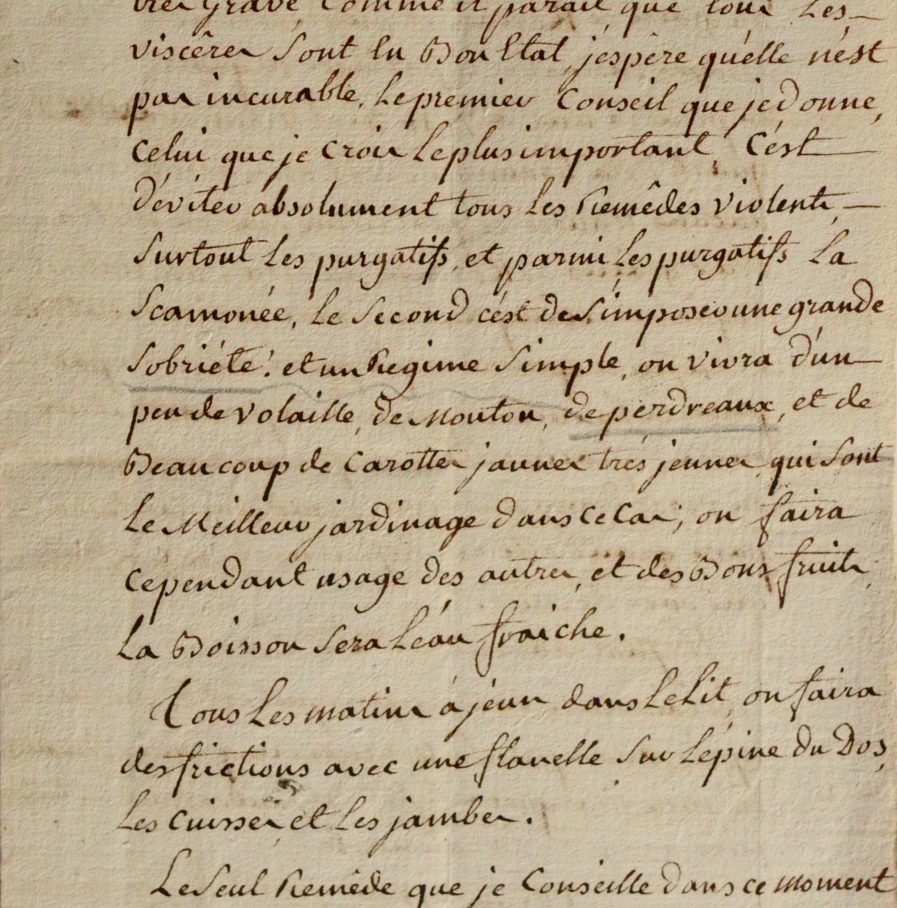 très grave comme il parait que tous Les
viscères Sont En Bon Etat, j'espère qu'elle n'est
pas incurable. Le premier Conseil que je donne,
Celui que je Crois Le plus important, C'est
D'éviter absolument tous Les Remêdes violents,
Surtout Les purgatifs, et parmi Les purgatifs La
Scamonée, Le Second c'est de S'imposer une grande
Sobriété: et un Régime Simple, on vivra d'un
peu de volaille, de Mouton, de perdreaux, et de
Beaucoup de Carottes jaunes très jeunes, qui Sont
Le Meilleur jardinage dans ce Cas; on faira
Cependant usage des autres, et des Bons fruits,
La Boisson Sera L'éau fraiche.
Tous Les matins à jeun dans Le Lit, on faira
des frictions avec une flanelle Sur L'épine du Dos,
Les Cuisses, et Les jambes.
Le Seul Remêde que je Conseille dans ce moment